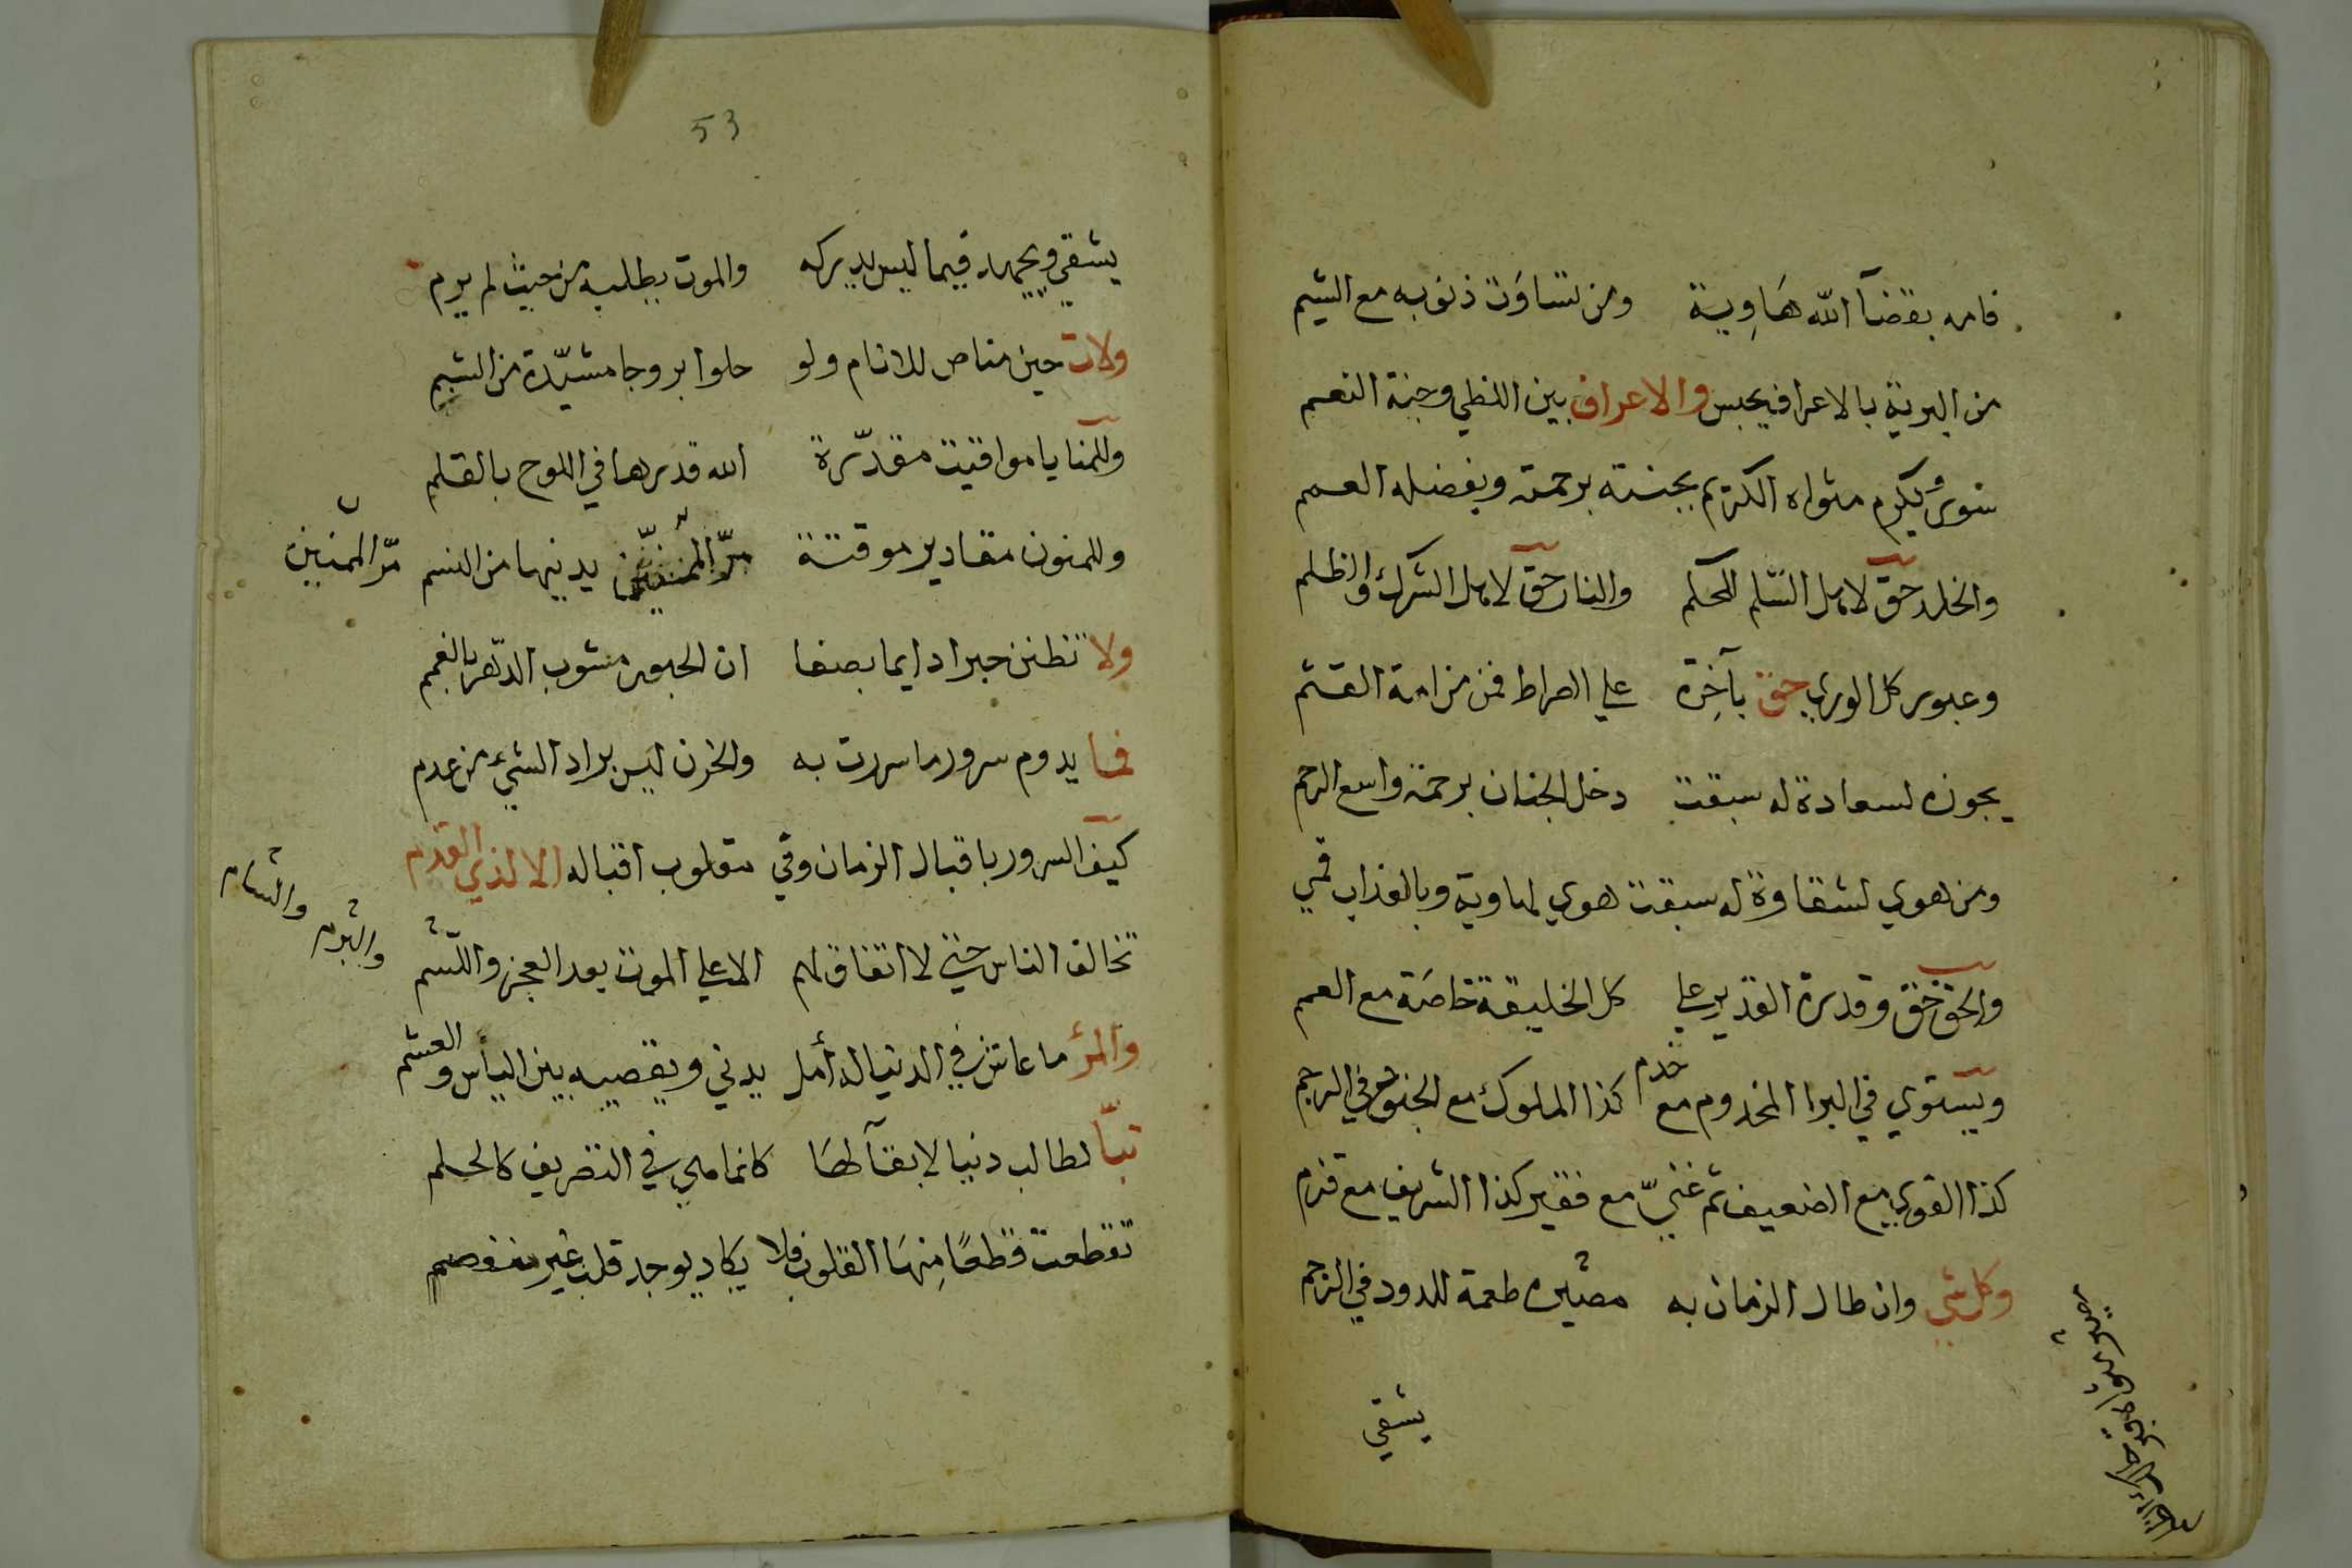 فامه بقضآ الله هَاوِية ومن تساوَت ذنوبه مع الشيم
من البرية بالاعراف يحبس والاعراف بين اللظي وجنة النعم
سوي ويكرم مثواه الكريم بجنته برحمته وبفضله العمم
والخلد حق لاهل السّلم للحكم والنار حق لاهل الشرك والظلم
وعبور كل الوري حق بآخِرة علي الصراط فمن مزامة القثم
يجوزه لسعادة له سبقت دخل الجنان برحمة واسع الرحم
ومن هوي لشقاوة له سبقت هوي لهاوية وبالعذاب قمي
والحق حق وقدرة القدير علي كل الخليقة خاصَة مع العمم
ويستوي في البرا المخدوم مع خدم كذا الملوك مع الجنود في الرجم
كذا القوي مع الضعيف ثم غنيّ مع فقير كذا الشريف مع قزم
وكل شي وان طال الزمان به مصيره طعمة للدود في الرجم
يشقي
53
يشقي ويجهد فيما ليس يدركه والموت يطلبه من حيث لم يرم
ولات حين مناص للانام ولو حلوا بروجا مشيّدة من الشيم
وللمنايا مواقيت مقدّرة الله قدرها في اللوح بالقلم
وللمنون مقادير موقتة مرّ المنين يدنيها من النسم
مرّ المنين
ولا تظنن حبرا دايما بصفا ان الحبور مشوب الدّهر بالغمم
فما يدوم سرور ما سررت به والحزن ليس براد الشيء من عدم
كيف السرور باقبال الزمان وفي مقلوب اقباله الا لذي القدم
تخالف الناس حتي لا اتفاق لهم الا علي الموت بعد العجز واللّشم
والمرؤ ما عاش في الدنيا له أمل يدني ويقصيه بين اليأس والعشم
تبّا لطالب دنيا لا بقآ لهَا كانما هي في التصريف كالحلم
تقطعت قطعًا مِنهَا القلوب فلا يكاد يوجد قلب غير منفصم